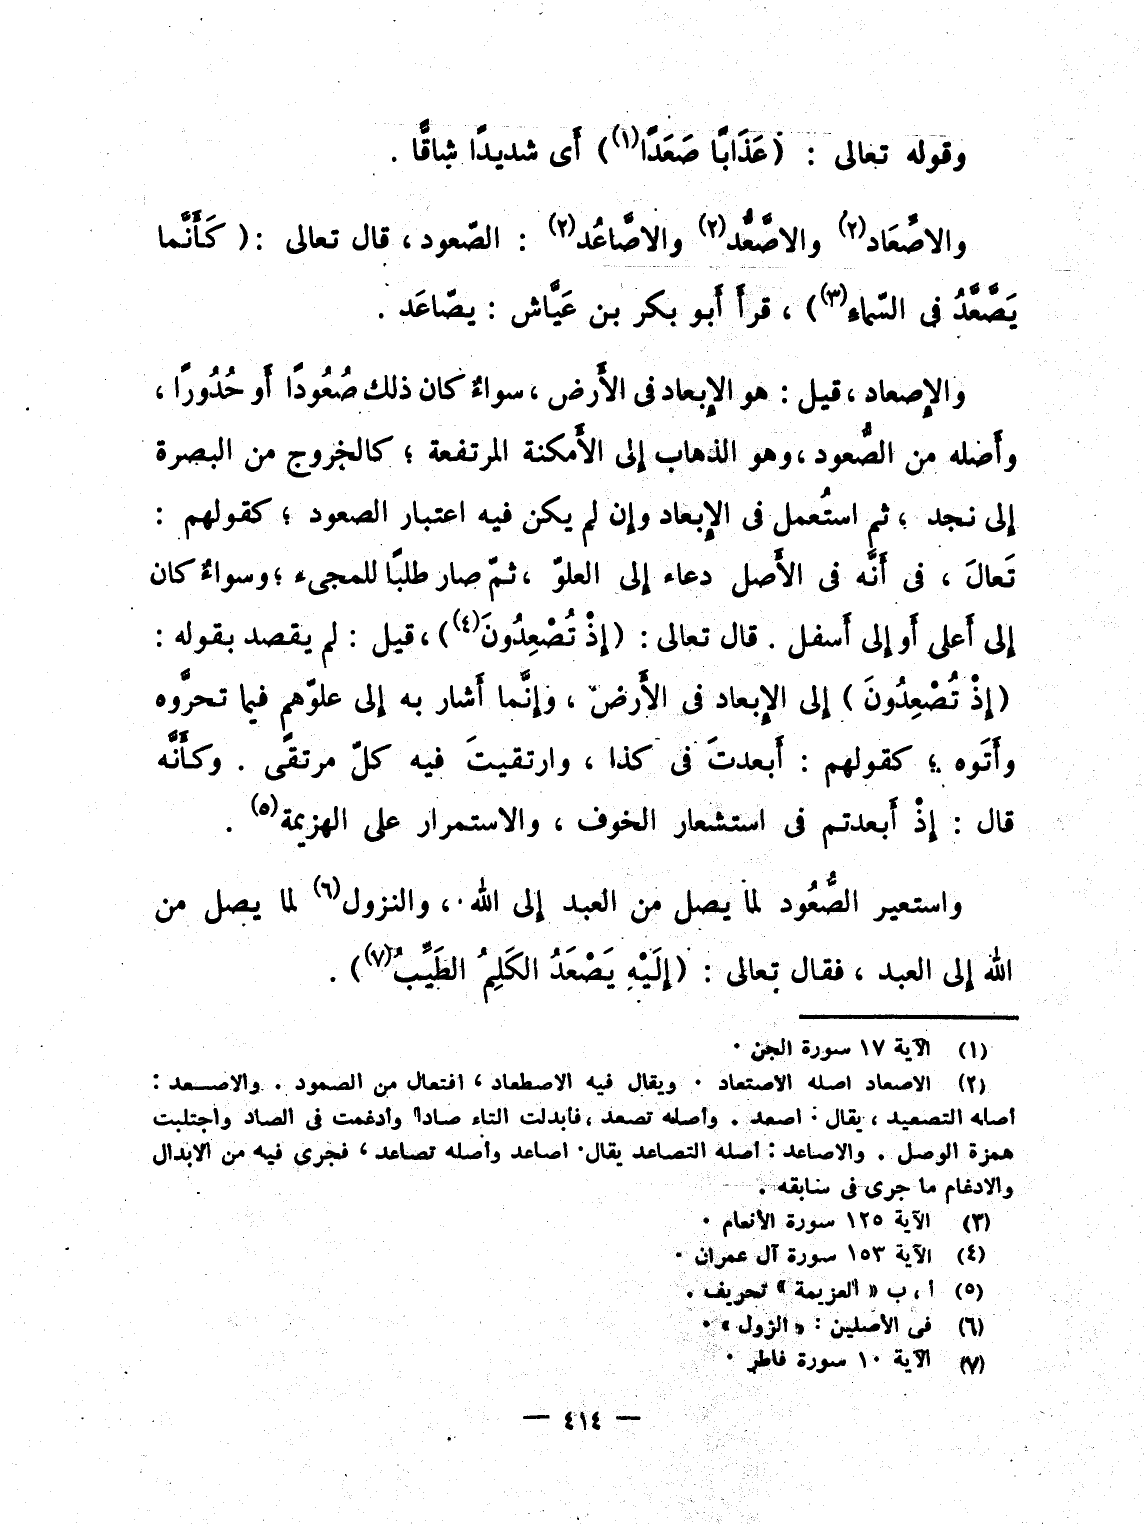 وقوله تعالى : (عَذَابًا صَعَدًا(١)) أَى شديدًا شاقًّا .
والاصّعَاد(٢) والاصَّعُّد(٢) والاصَّاعُد(٢) : الصّعود ، قال تعالى :( كَأَنَّما
يَصَّعَّدُ فى السّماء(٣)) ، قرأَ أَبو بكر بن عَيَّاش : يصّاعَد .
والإِصعاد ، قيل : هو الإِبعاد فى الأَرض ، سواءٌ كان ذلك صُعُودًا أَو حُدُورًا ،
وأَصله من الصُّعود ، وهو الذهاب إلى الأَمكنة المرتفعة ؛ كالخروج من البصرة
إلى نجد ، ثم استُعمل فى الإِبعاد وإن لم يكن فيه اعتبار الصعود ؛ كقولهم :
تَعالَ ، فى أَنَّه فى الأَصل دعاء إلى العلوّ ، ثمّ صار طلبًا للمجىء ؛ وسواءٌ كان
إلى أَعلى أَو إلى أَسفل . قال تعالى : (إِذْ تُصْعِدُونَ(٤)) ، قيل : لم يقصد بقوله :
(إِذْ تُصْعِدُونَ ) إلى الإِبعاد فى الأَرض ، وإنَّما أَشار به إلى علوّهم فيما تحرَّوه
وأَتَوه ؛ كقولهم : أَبعدتَ فى كذا ، وارتقيتَ فيه كلّ مرتقًى . وكأَنَّه
قال : إِذْ أَبعدتم فى استشعار الخوف ، والاستمرار على الهزيمة(٥) .
واستعير الصُّعُود لما يصل من العبد إلى الله ، والنزول(٦) لما يصل من
الله إلى العبد ، فقال تعالى : (إِلَيْهِ يَصْعَدُ الكَلِمُ الطَيِّبُ(٧)) .
(١) الآية ١٧ سورة الجن ٠
(٢) الاصعاد أصله الاصتعاد ٠ ويقال فيه الاصطعاد ، افتعال من الصعود . والاصـعد :
أصله التصعيد ، يقال : اصعد . وأصله تصعد ، فأبدلت التاء صادا وأدغمت فى الصاد واجتلبت
همزة الوصل . والاصاعد : أصله التصاعد يقال : اصاعد وأصله تصاعد ، فجرى فيه من الابدال
والادغام ما جرى فى سابقه .
(٣) الآية ١٢٥ سورة الأنعام ٠
(٤) الآية ١٥٣ سورة آل عمران ٠
(٥) أ ، ب « العزيمة » تحريف .
(٦) فى الأصلين : « الزول » ٠
(٧) الآية ١٠ سورة فاطر ٠
— ٤١٤ —